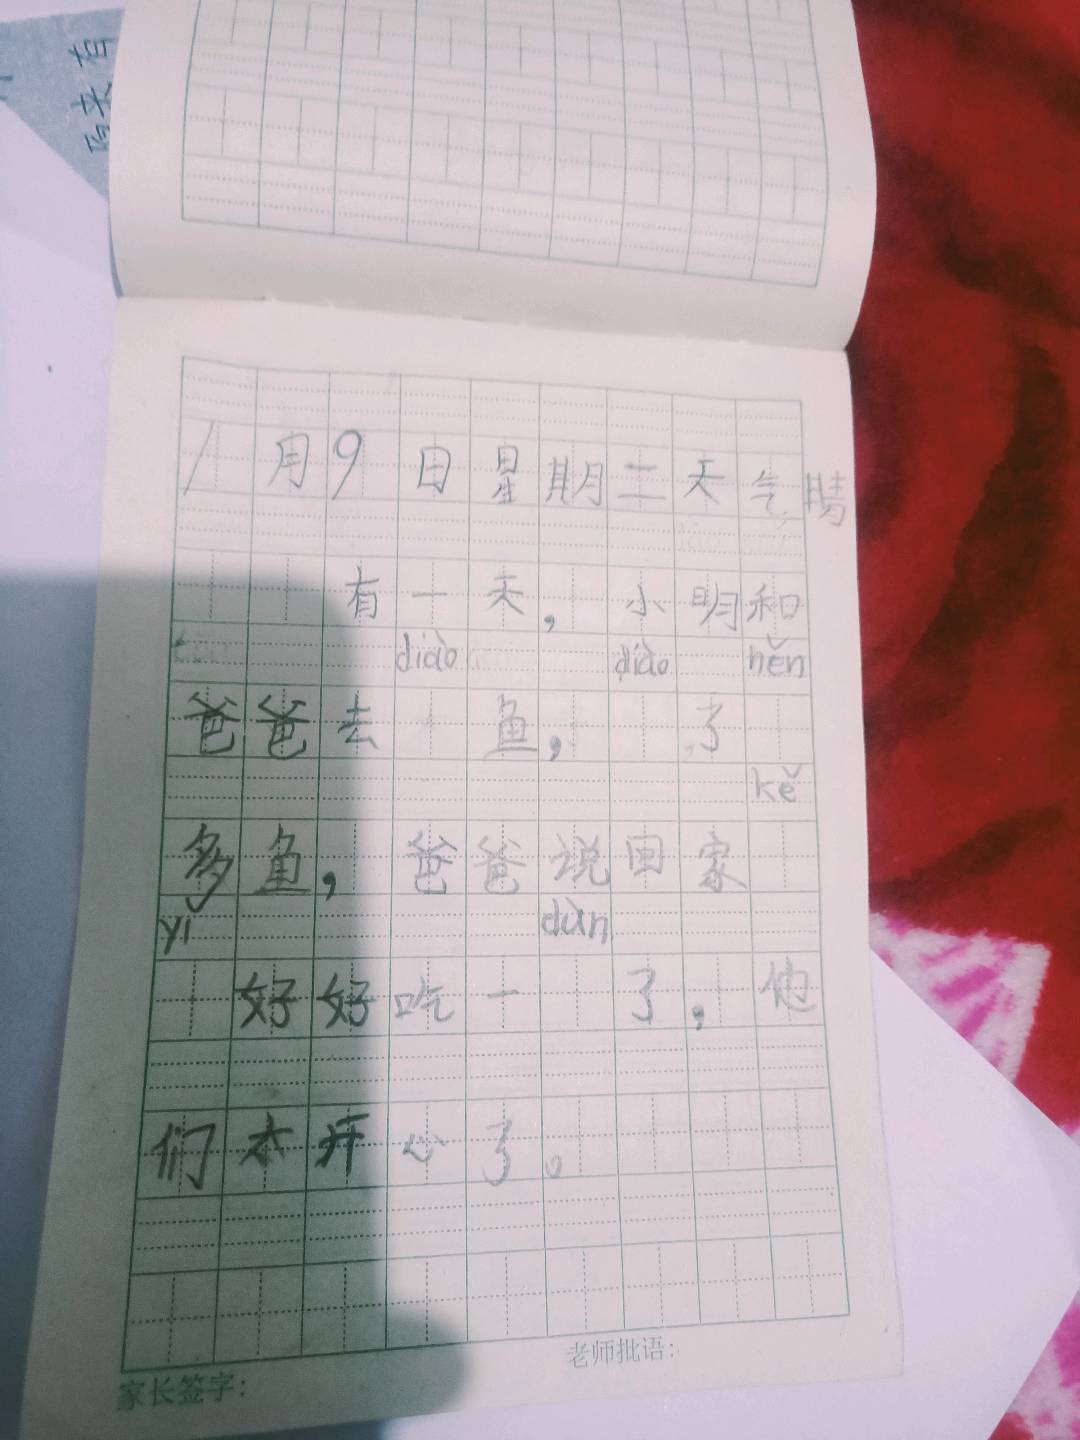 原来有
1月9日星期二天气晴
有一天,小明和
diào diào hěn
爸爸去鱼,了
kě
多鱼,爸爸说回家
yǐ dùn
好好吃一了,他
们本开心了。
老师批语:
家长签字: